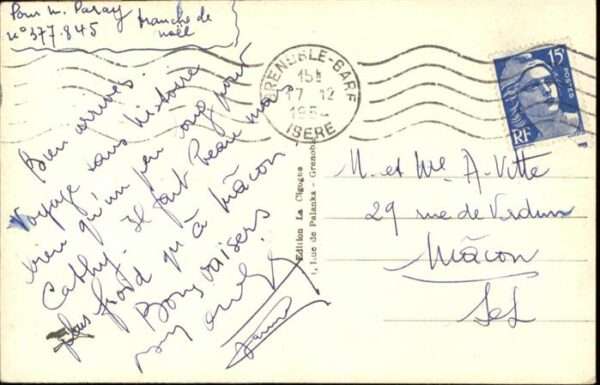 Pour M. Paray tranche de
n° 377.845 noël
Bien arrivés.
Voyage sans histoire
bien qu'un peu long pour
Cathy. Il fait beau mais
plus froid qu'à Mâcon.
Bons baisers
GRENOBLE-GARE
15H
17-12
ISERE
15F
POSTES
RF
Edition La Cigogne
1, Rue de Palanka - Grenoble
M. et Me A. Vitte
29 rue de Verdun
Mâcon
S et L